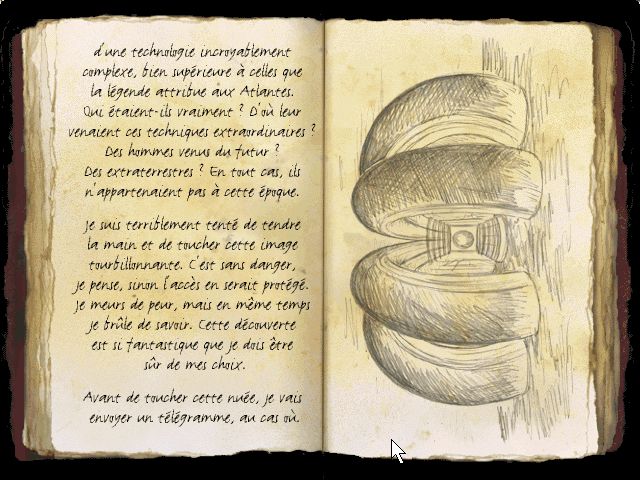 d'une technologie incroyablement
complexe, bien supérieure à celles que
la légende attribue aux Atlantes.
Qui étaient-ils vraiment ? D'où leur
venaient ces techniques extraordinaires ?
Des hommes venus du futur ?
Des extraterrestres ? En tout cas, ils
n'appartenaient pas à cette époque.
Je suis terriblement tenté de tendre
la main et de toucher cette image
tourbillonnante. C'est sans danger,
je pense, sinon l'accès en serait protégé.
Je meurs de peur, mais en même temps
je brûle de savoir. Cette découverte
est si fantastique que je dois être
sûr de mes choix.
Avant de toucher cette nuée, je vais
envoyer un télégramme, au cas où.